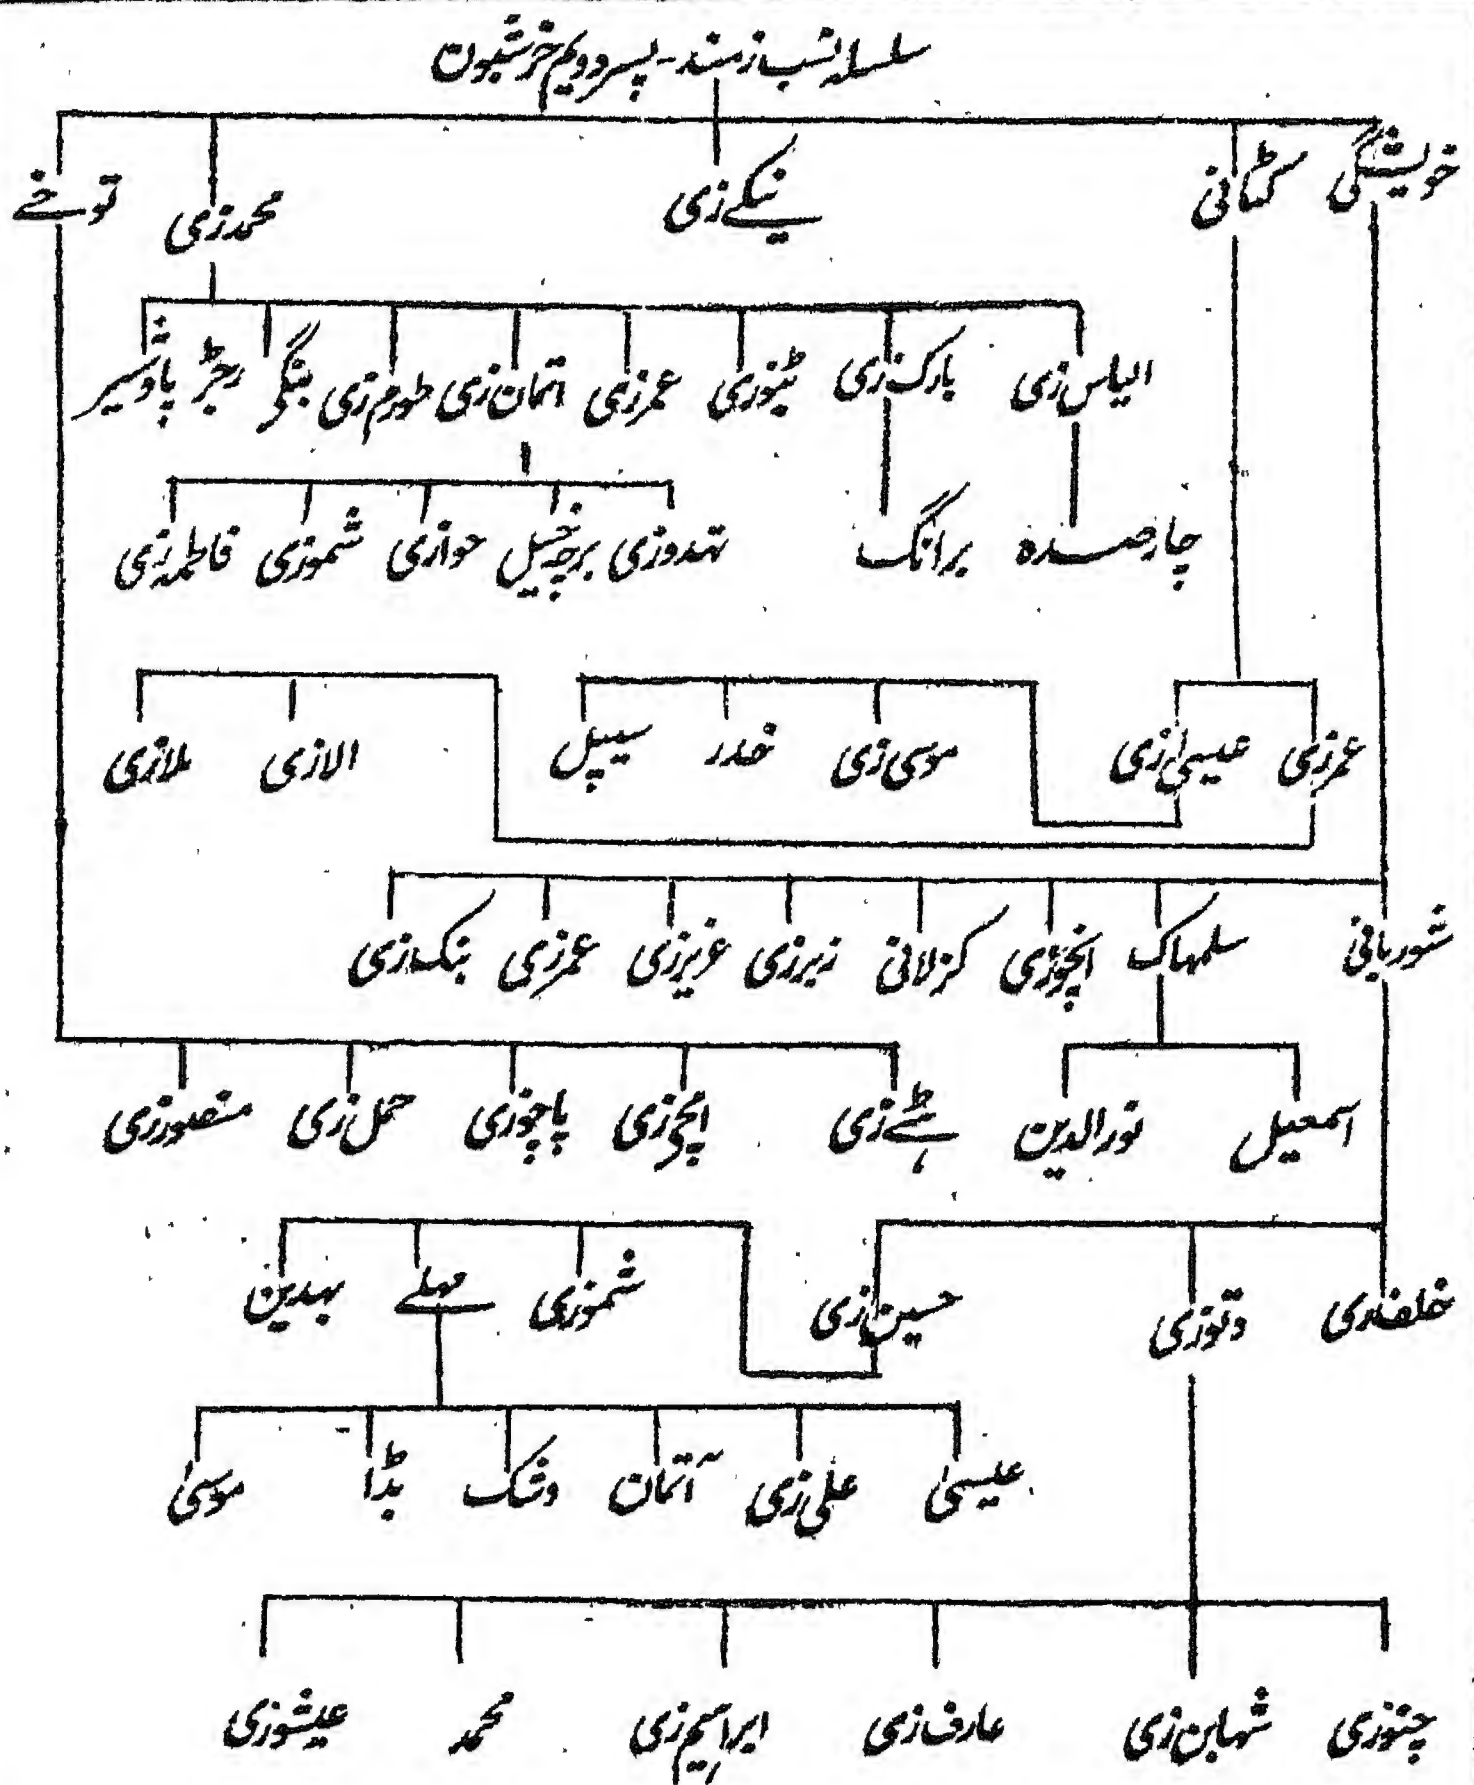 سلسلہ نسب زمند - پسر دویم خرشبون
خویشگی کٹانی نیکے زی محمد زی توخے
الیاس زی بارک زی ٹپوزی عمرزی اتمان زی طورم زی ہنگر رجڑ پاؤشیر
چارصدہ برانگ تہدوزی برچہ خیل حوازی شموزی فاطمہ زی
عمرزی عیسیٰ زی موسی زی خدر سیپل الازی ملازی
شوربانی سلمہاک انچوزی کزلانی زیرزی عزیززی عمرزی بنک زی
اسمعیل نورالدین ہٹے زی اچی زی پاچوزی حمل زی منصورزی
خلف زی وتوزی حسین زی شموزی مہلے بہدین
عیسیٰ علی زی آتمان وشک بڈا موسیٰ
چنوزی شہابن زی عارف زی ابراہیم زی محمد عیشوزی